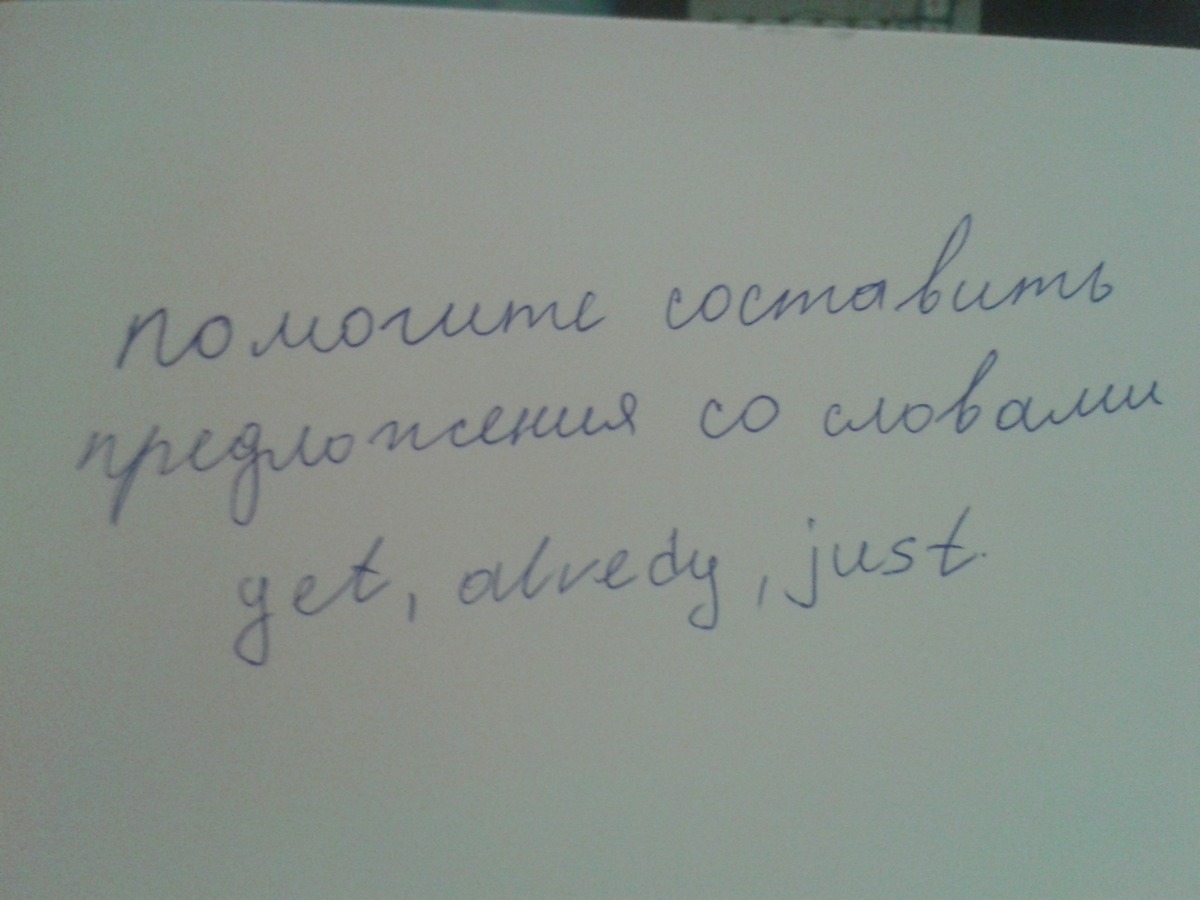 помогите составить
предложения со словами
get, alredy, just.